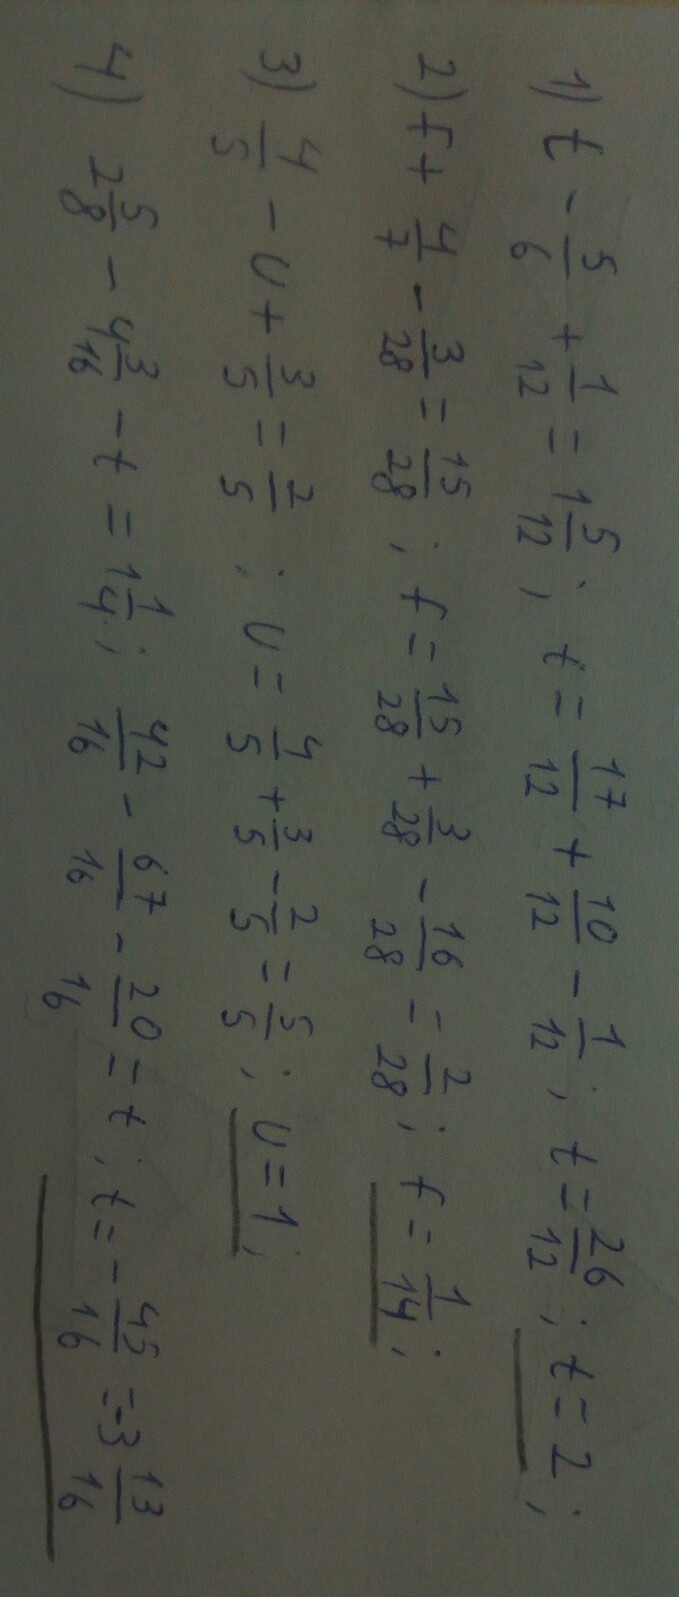 1) t - 5/6 + 1/12 = 1 5/12; t = 17/12 + 10/12 - 1/12; t = 26/12; t = 2;
2) f + 4/7 - 3/28 = 15/28; f = 15/28 + 3/28 - 16/28 = 2/28; f = 1/14;
3) 4/5 - U + 3/5 = 2/5; U = 4/5 + 3/5 - 2/5 = 5/5; U = 1;
4) 2 5/8 - 4 3/16 - t = 1 1/4; 42/16 - 67/16 - 20/16 = t; t = - 45/16 = -3 13/16